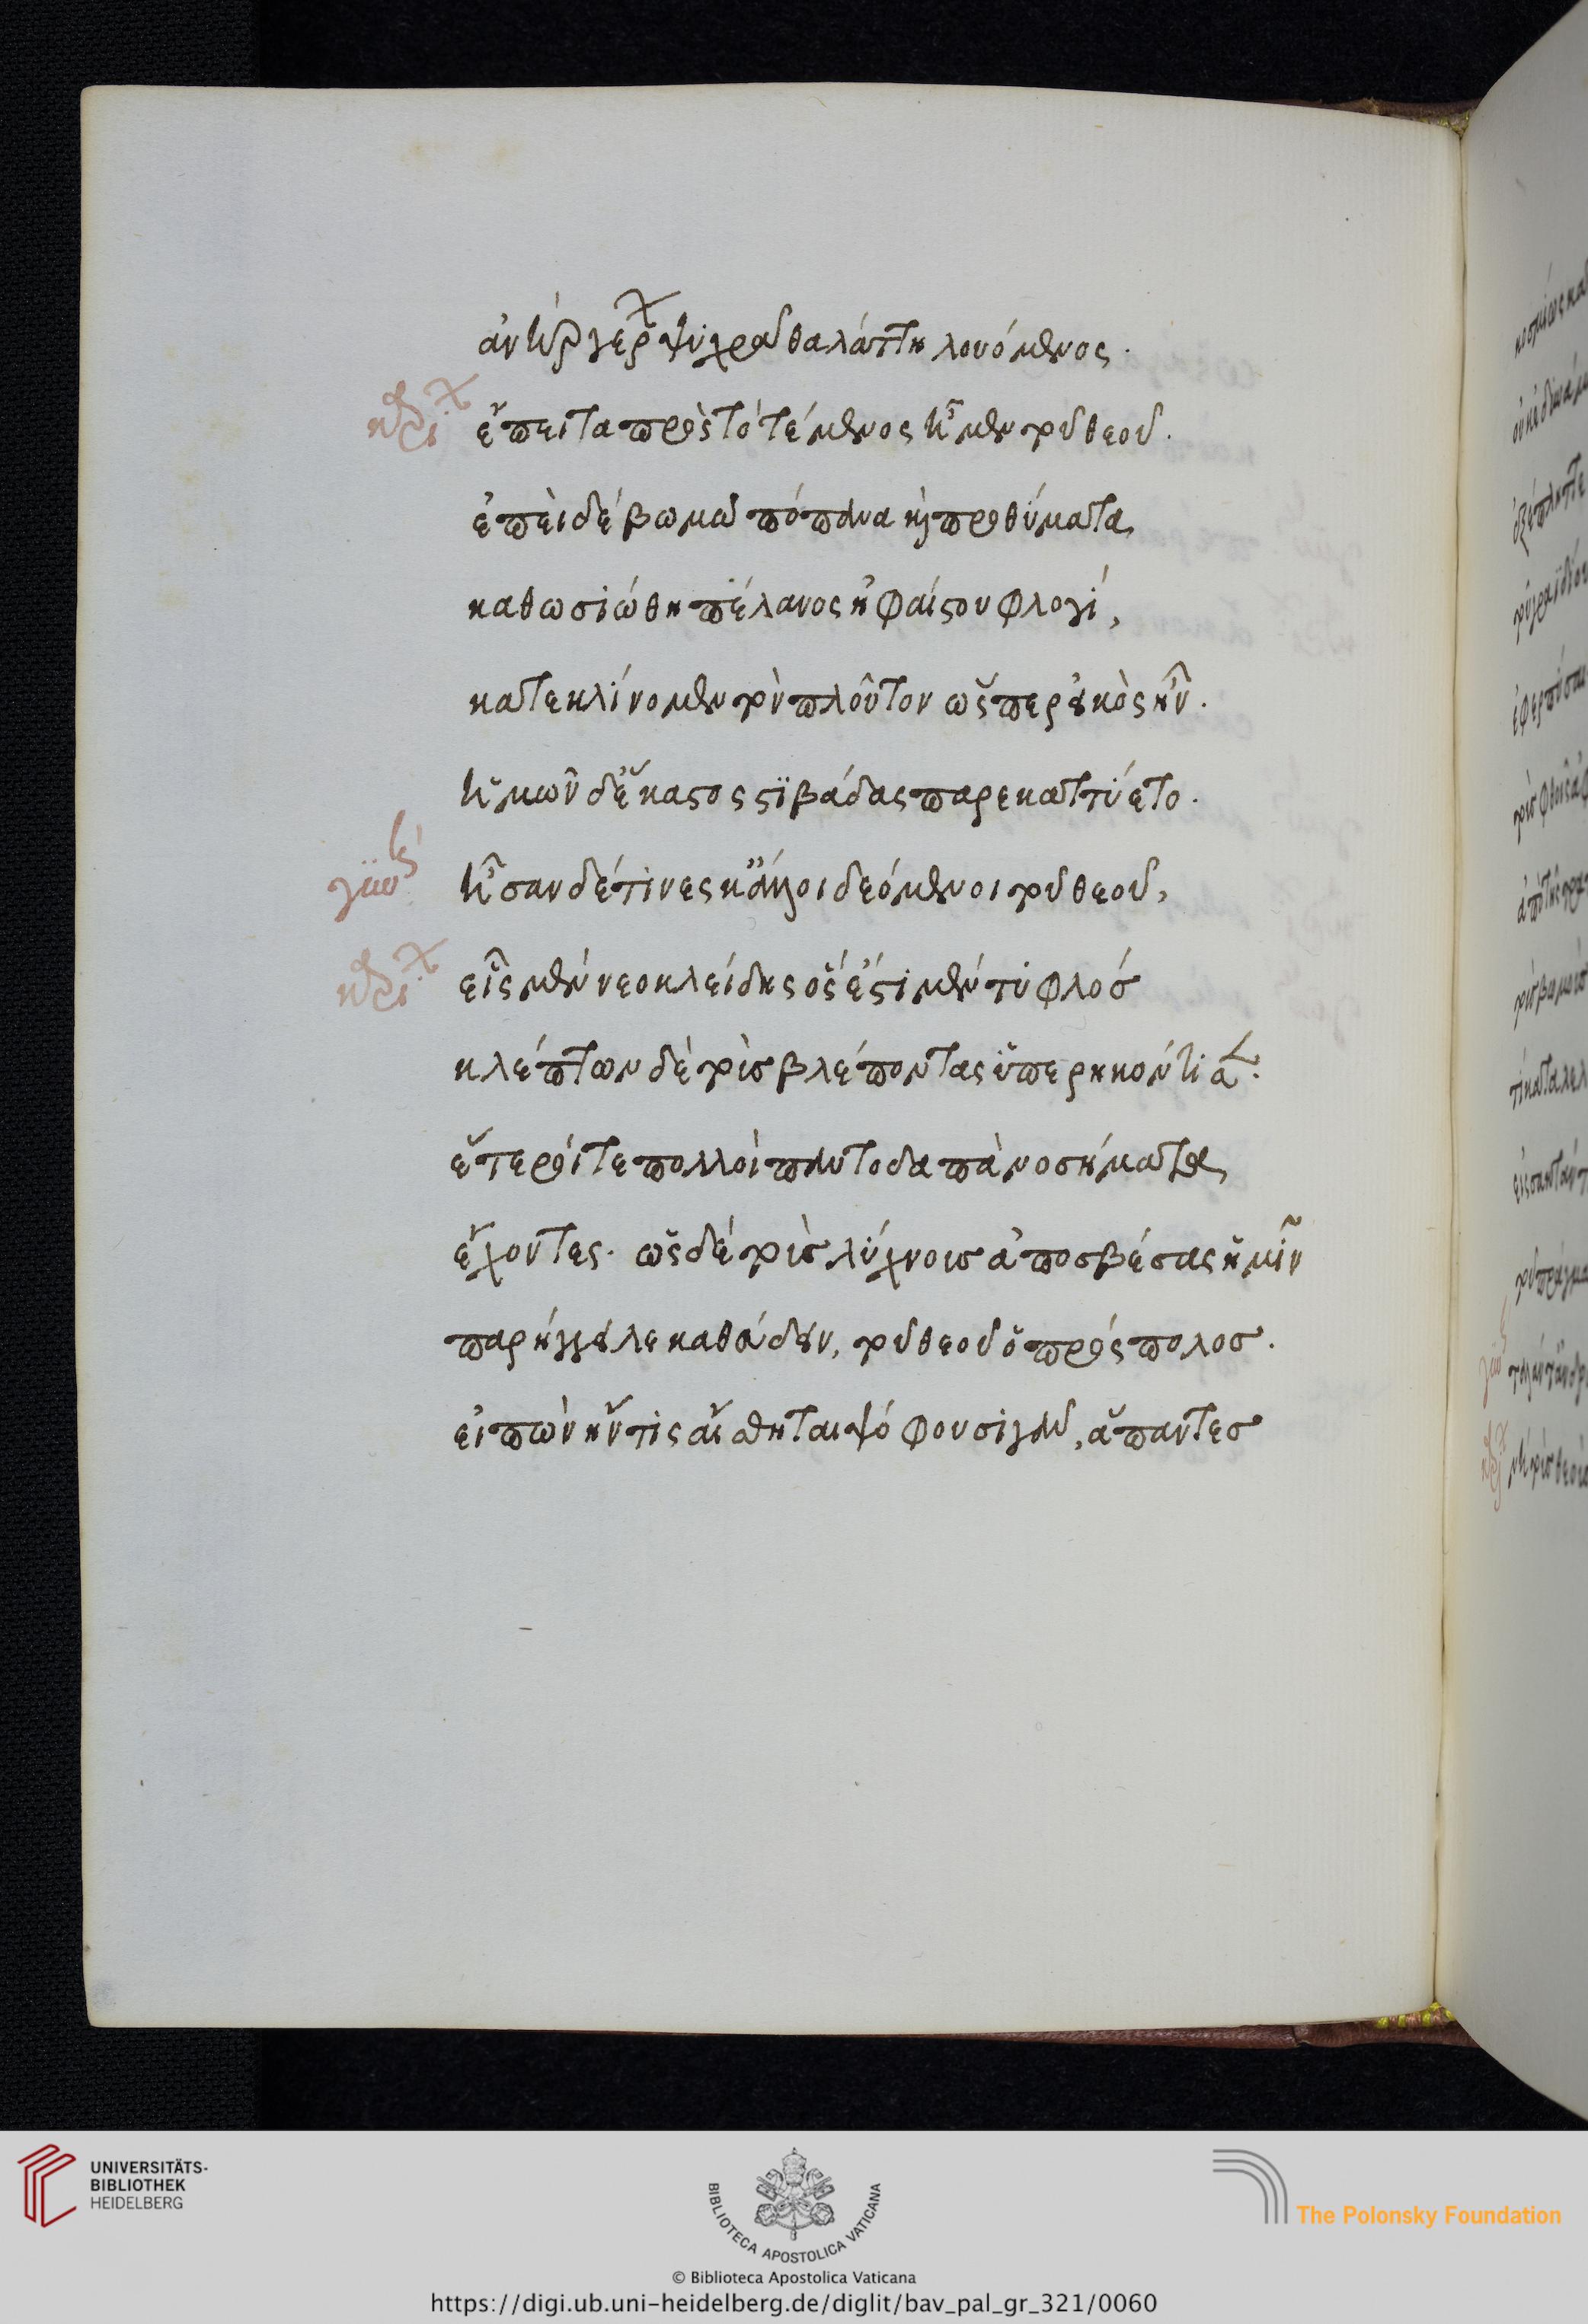 ἀνὴρ γέρων ψυχρᾶ θαλάττη λουόμενος.
καρί ἔπειτα πρὸς τὸ τέμενος ἦμεν τοῦ θεοῦ.
ἐπεὶ δὲ βωμῶ πόπανα καὶ προθύματα
καθωσιώθη πέλανος ἡφαίστου φλογί,
κατεκλίνομεν τὸν πλοῦτον ὥσπερ εἰκὸς ἦν.
ἡμῶν δ' ἕκαστος στιβάδας παρεκαττύετο.
γυνὴ ἦσαν δέ τινες κἄλλοι δεόμενοι τοῦ θεοῦ,
καρί εἷς μὲν νεοκλείδης ὅς ἐστι μὲν τυφλός
κλέπτων δὲ τοὺς βλέποντας ὑπερηκόντισα.
ἕτεροί τε πολλοὶ παντοδαπὰ νοσήματα
ἔχοντες. ὡς δὲ τοὺς λύχνους ἀποσβέσας ἡμῖν
παρήγγειλε καθεύδειν, τοῦ θεοῦ ὁ πρόσπολος.
εἰπὼν ἤν τις αἴσθηται ψόφου σιγᾶν, ἅπαντες
UNIVERSITÄTS-
BIBLIOTHEK
HEIDELBERG
BIBLIOTECA APOSTOLICA VATICANA
The Polonsky Foundation
© Biblioteca Apostolica Vaticana
https://digi.ub.uni-heidelberg.de/diglit/bav_pal_gr_321/0060